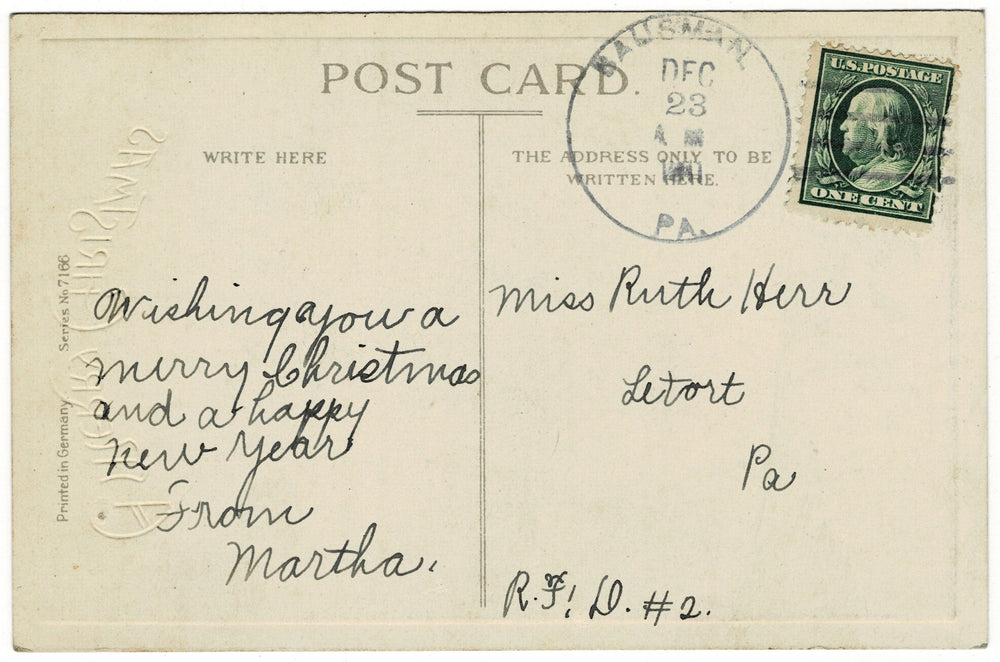 POST CARD.
WRITE HERE
THE ADDRESS ONLY TO BE
WRITTEN HERE.
BAUSMAN,
DEC
23
A M
PA.
U.S. POSTAGE
ONE CENT
Wishing you a
merry Christmas
and a happy
New Year
From
Martha.
Miss Ruth Herr
Letort
Pa
R.F. D. #2.
Printed in Germany
Series No 7166
A MERRY CHRISTMAS